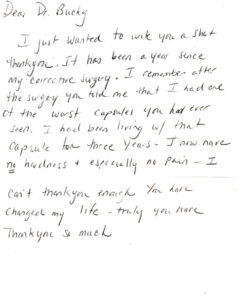 Dear Dr. Bucky
I just wanted to write you a short
thankyou. It has been a year since
my corrective surgery. I remember after
the surgery you told me that I had one
of the worst capsules you had ever
seen. I had been living w/ that
capsule for three years - I now have
no hardness & especially no pain - I
can't thankyou enough You have
changed my life - truly you have
Thankyou so much